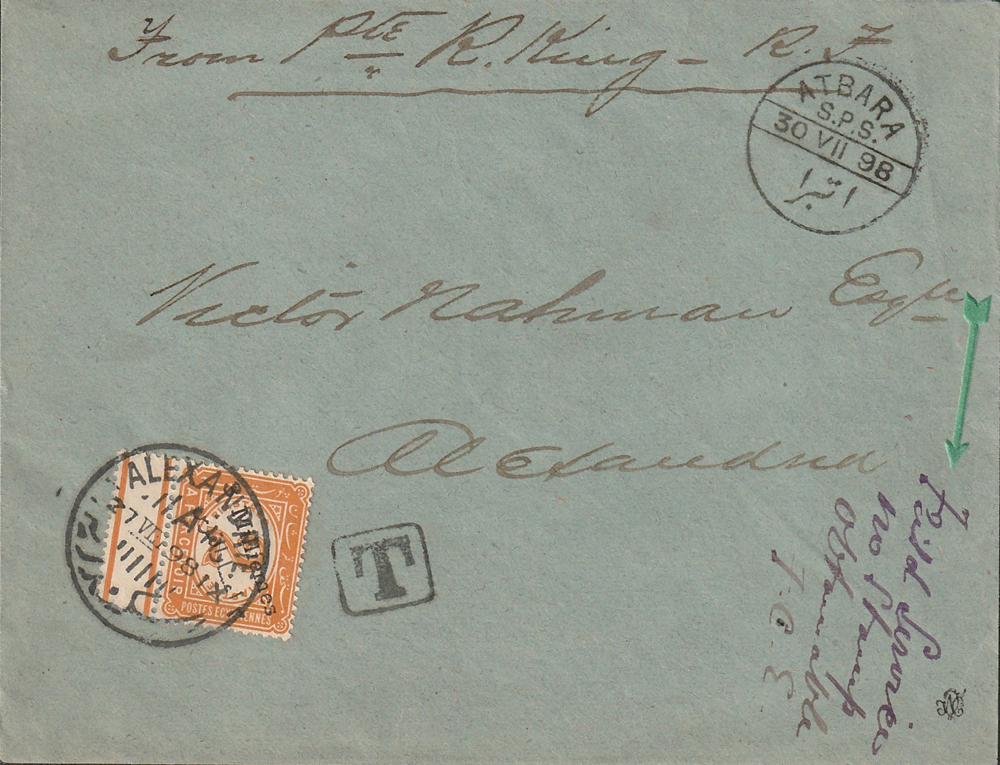 From Pte R. King - R. F
ATBARA
S.P.S.
30 VII 98
اتبرا
Victor Nahman Esqre
Alexandria
ALEXAN
27 VII 98
A PERCEVOIR
POSTES EGYPTIENNES
Milliemes
T
Field Service
no Stamps
Obtainable